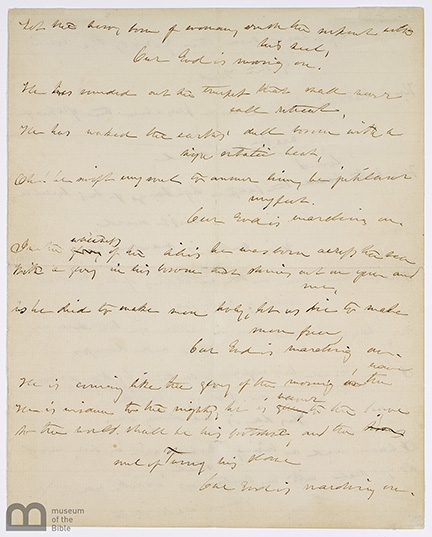 Let the hero, born of woman, crush the serpent with
his heel,
Our God is moving on.
He has sounded out the trumpet that shall never
call retreat,
He has waked the earth's dull bosom with a
high beat,
Oh! be swift my soul to answer him, be jubilant
my feet.
Our God is marching on.
In the whiteness of the lilies he was born across the sea
With a glory in his bosom that shines out on you and
me,
As he died to make men holy, let us die to make
men free
Our God is marching on.
He is coming like the glory of the morning on the wave
He is wisdom to the mighty, he is to the brave
So the world shall be his footstool and the
soul of Time his slave
Our God is marching on.
museum
of the
Bible